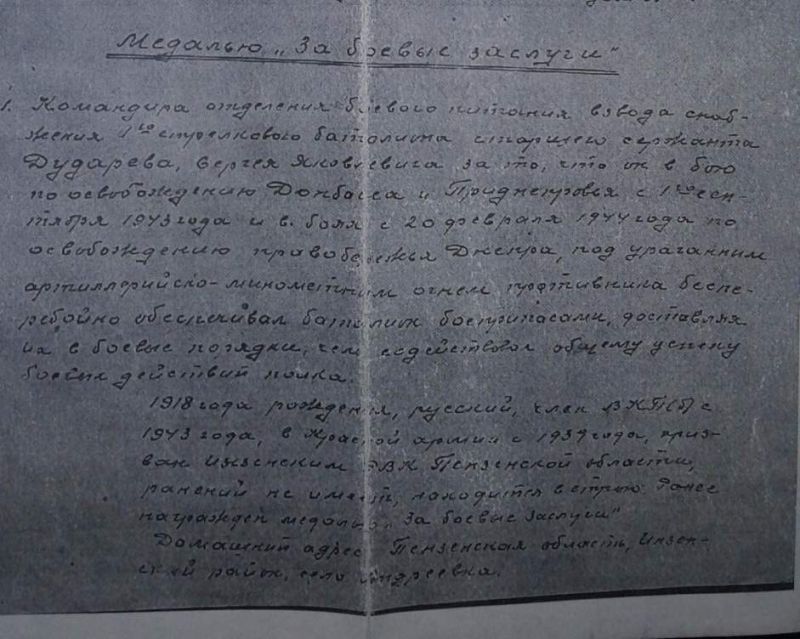 Медалью „За боевые заслуги"
1. Командира отделения боевого питания взвода снаб-
жения 1го стрелкового батальона старшего сержанта
Дударева, Сергея Яковлевича за то, что он в бою
по освобождению Донбасса и Приднепровья с 1го сен-
тября 1943 года и в боях с 20 февраля 1944 года по
освобождению правобережья Днепра, под ураганным
артиллерийско-минометным огнем противника беспе-
ребойно обеспечивал батальон боеприпасами, доставляя
их в боевые порядки, чем содействовал общему успеху
боевых действий полка.
1918 года рождения, русский, член ВКП(б) с
1943 года, в Красной армии с 1939 года, приз-
ван Инзенским РВК Пензенской области,
ранений не имеет, находится в строю. Ранее
награжден медалью „За боевые заслуги"
Домашний адрес: Пензенская область, Инзен-
ский район, село Андреевка.